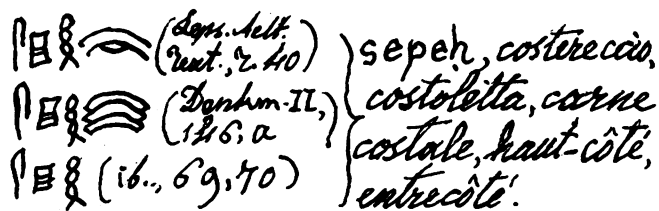 𓋴𓊪𓎛𓄪 (Leps. Aelt.
Text., z 40)
𓋴𓊪𓎛𓄪𓄪𓄪 (Denkm. II,
146, a
𓋴𓊪𓎛 (ib., 69, 70)
sepeh, costereccio,
costoletta, carne
costale, haut-côté,
entrecôté.